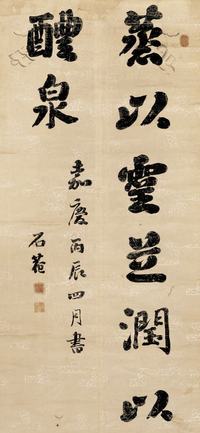 蒸以靈芝潤以
醴泉
嘉慶丙辰四月書
石菴